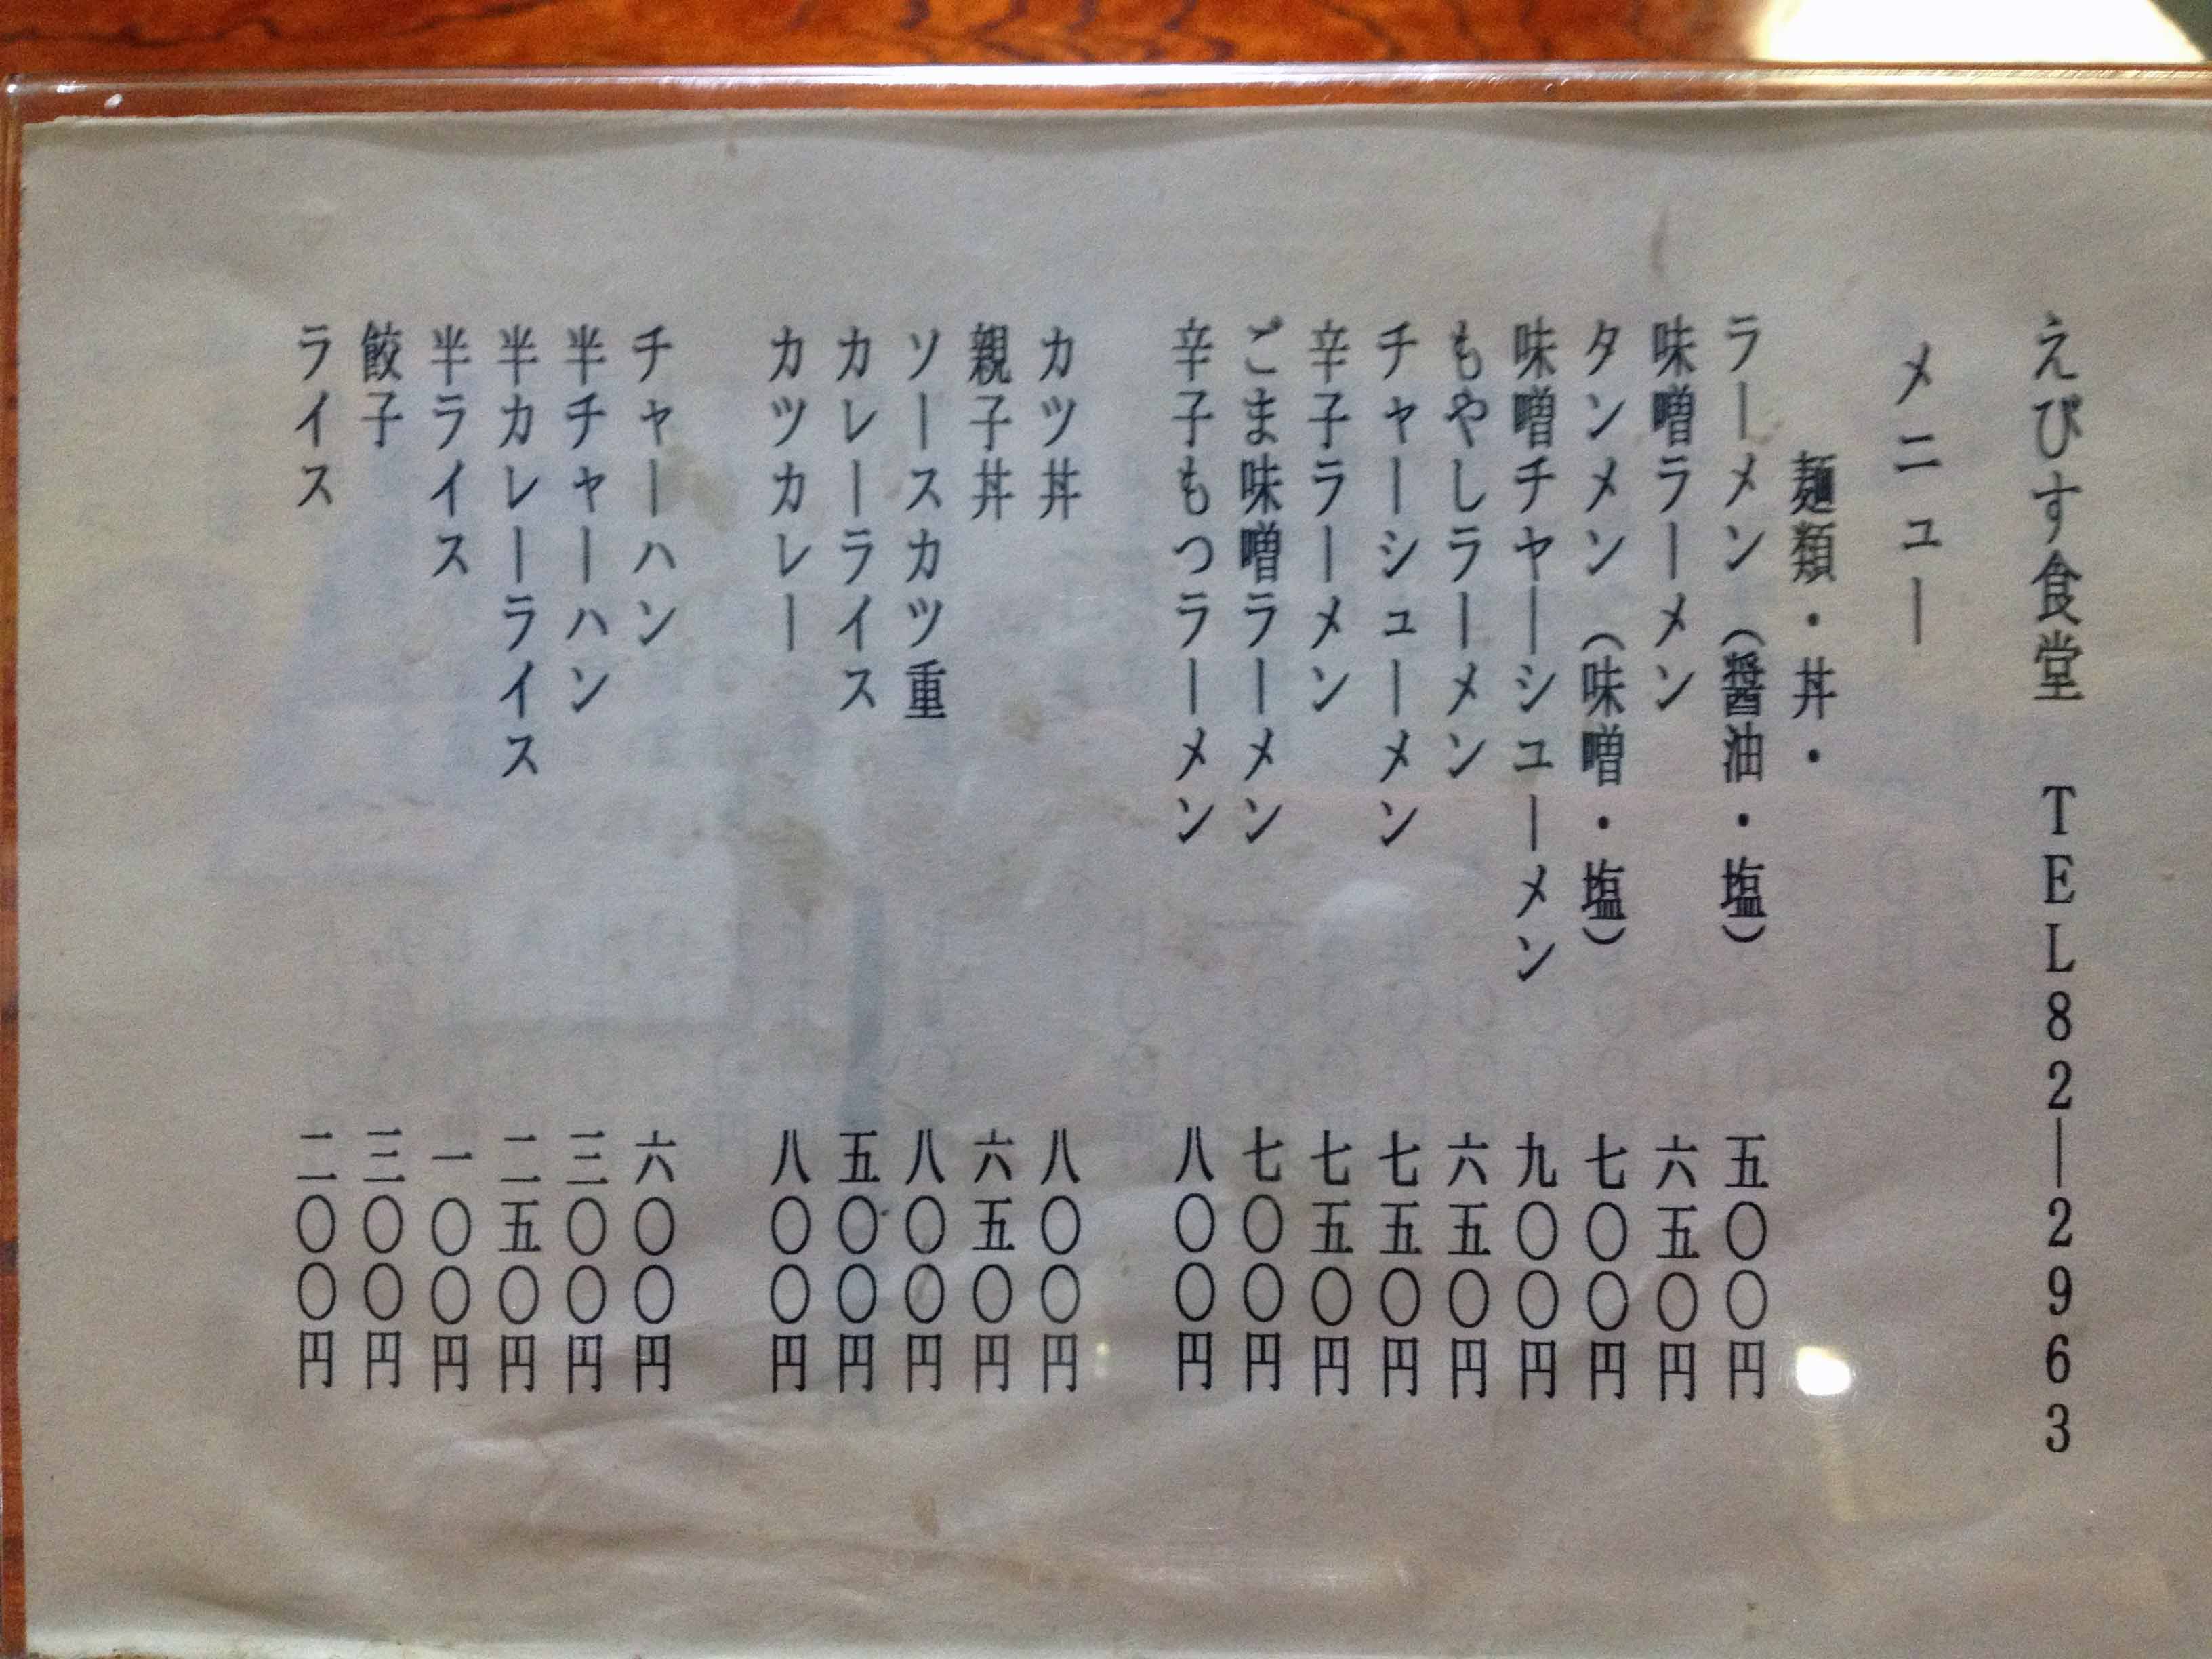 えびす食堂　TEL82―2963
メニュー
麺類・丼・
ラーメン（醤油・塩）　五〇〇円
味噌ラーメン　六五〇円
タンメン（味噌・塩）　七〇〇円
味噌チヤーシユーメン　九〇〇円
もやしラーメン　六五〇円
チャーシューメン　七五〇円
辛子ラーメン　七五〇円
ごま味噌ラーメン　七〇〇円
辛子もつラーメン　八〇〇円
カツ丼　八〇〇円
親子丼　六五〇円
ソースカツ重　八〇〇円
カレーライス　五〇〇円
カツカレー　八〇〇円
チャーハン　六〇〇円
半チャーハン　三〇〇円
半カレーライス　二五〇円
半ライス　一〇〇円
餃子　三〇〇円
ライス　二〇〇円